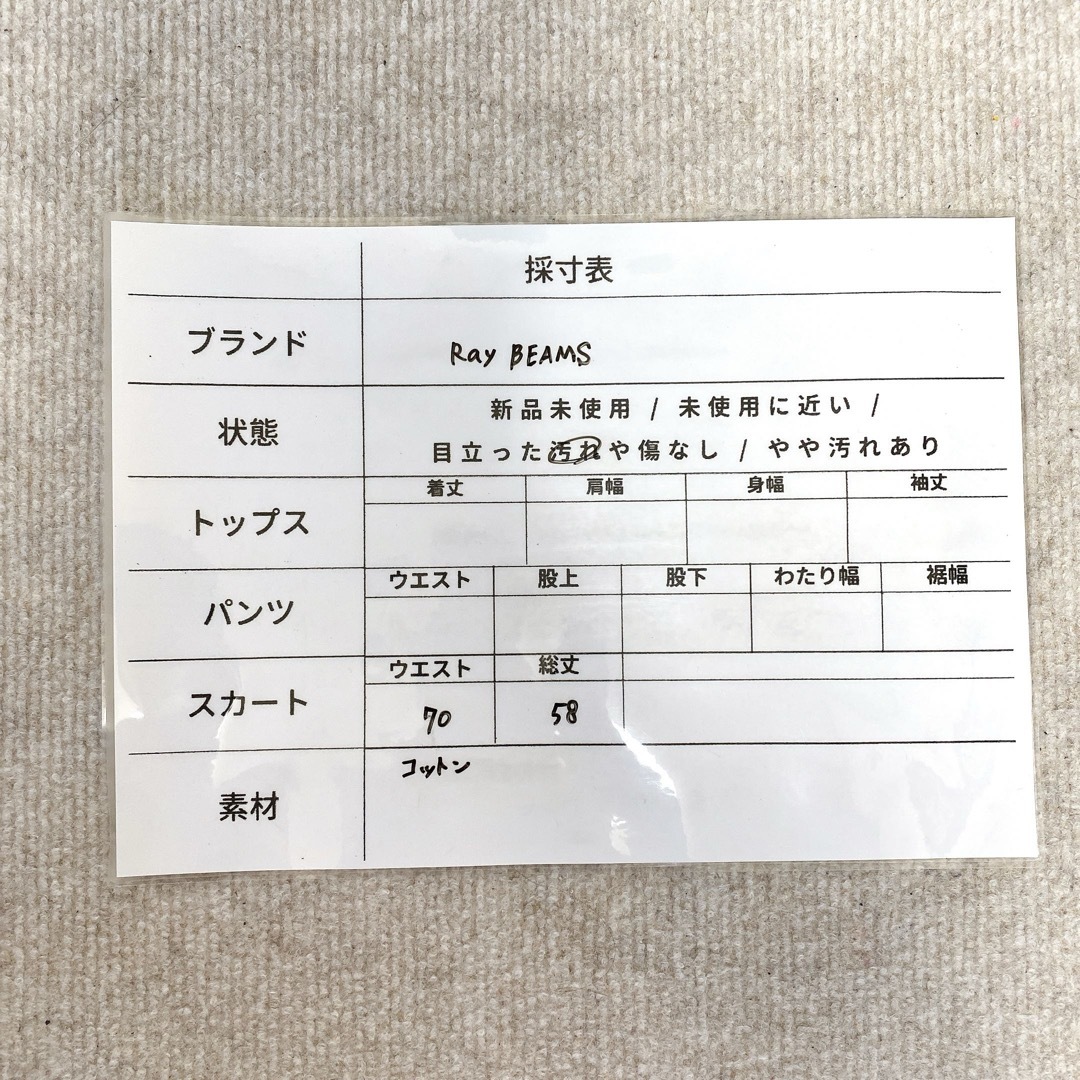 採寸表
ブランド
Ray BEAMS
状態
新品未使用 / 未使用に近い /
目立った汚れや傷なし / やや汚れあり
トップス
着丈 肩幅 身幅 袖丈
パンツ
ウエスト 股上 股下 わたり幅 裾幅
スカート
ウエスト 総丈
70 58
素材
コットン